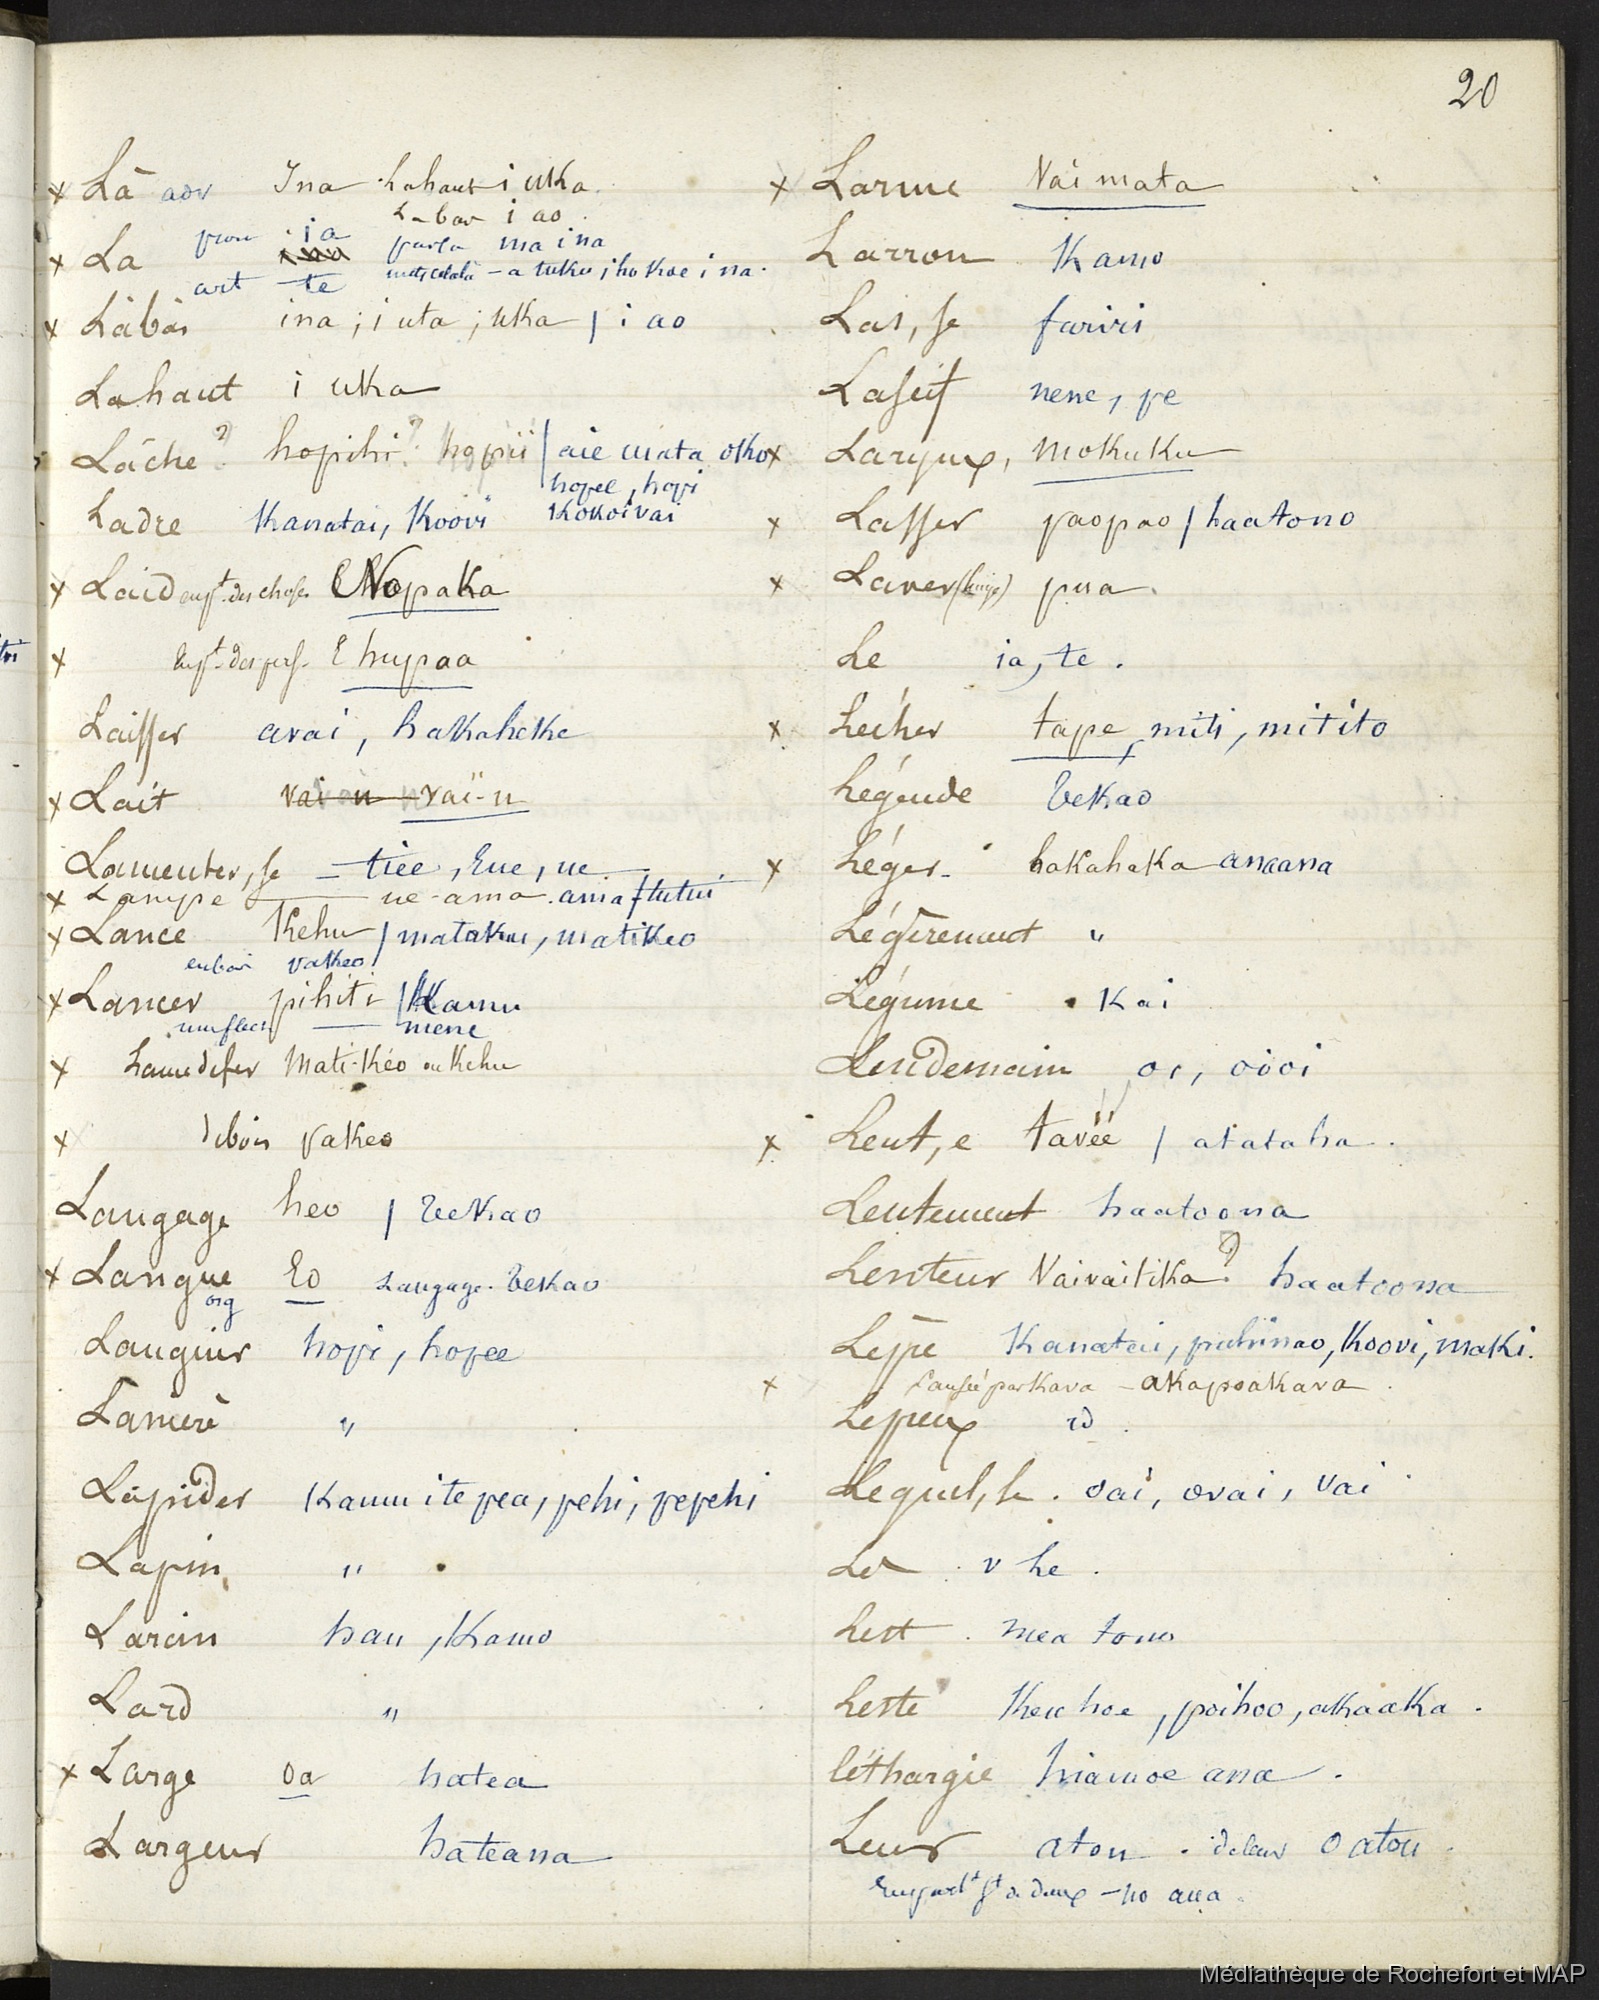 20
x Là adv Ina . hahaut i uka.
Labas i ao .
x La pron . ia par la ma ina
art te - a tuku iho koe i na.
x Làbàs ina ; i uta ; uka / i ao
Lahaut i uka
Lâche ? hopihi ? hopii / aie mata oko
hopee, hopi
Ladre Kanatai, Koovi Kokoivai
x Laid des choses E Nopaka
x E hupaa
Laisser avai, hakaheke
x Lait vai-u vaï-u
Lamenter, se tiee, Eue, ue
x Lampe ue-ama . ama / tutui
x Lance Kehu / matakau, matikeo
en bois vakeo
x Lancer pihiti / Kamu
mene
x Lance de fer Mati-Kéo ou Kehu
x de bois vakeo
Langage heo / Vekao
x Langue Eo Langage. Vekao
org
Languir hopi, hopee
Lanière "
Lapider Kamu i te pea, pehi, pepehi
Lapin "
Larcin hau, Kamo
Lard "
x Large oa hatea
Largeur hateana
x Larme Vaimata
Larron Kamo
Las, se fariri
Lascif nene, pe
x Larynx, mokuku
x Lasser paopao / haatono
x Laver (linge) pua .
Le ia, te .
x Lécher tape, miti, mitito
Légende Vekao
x Léger hakahaka anaana
Légèrement "
Légume Kai
Lendemain oi, oioi
x Lent, e tavëë / atataha .
Lentement haatoona
Lenteur Vaivaitika ? haatoona
Lèpre Kanatai, puhinao, Koovi, maki.
x Causée par Kava - akapoakava .
Lépreux id .
Lequel, le . oai, ovai, vai .
Les v he .
Lest . mea tona
Leste , poihoo, akaaka .
léthargie hiamoe ana .
Leur atou . de leur O atou .
- no aua .
Médiathèque de Rochefort et MAP